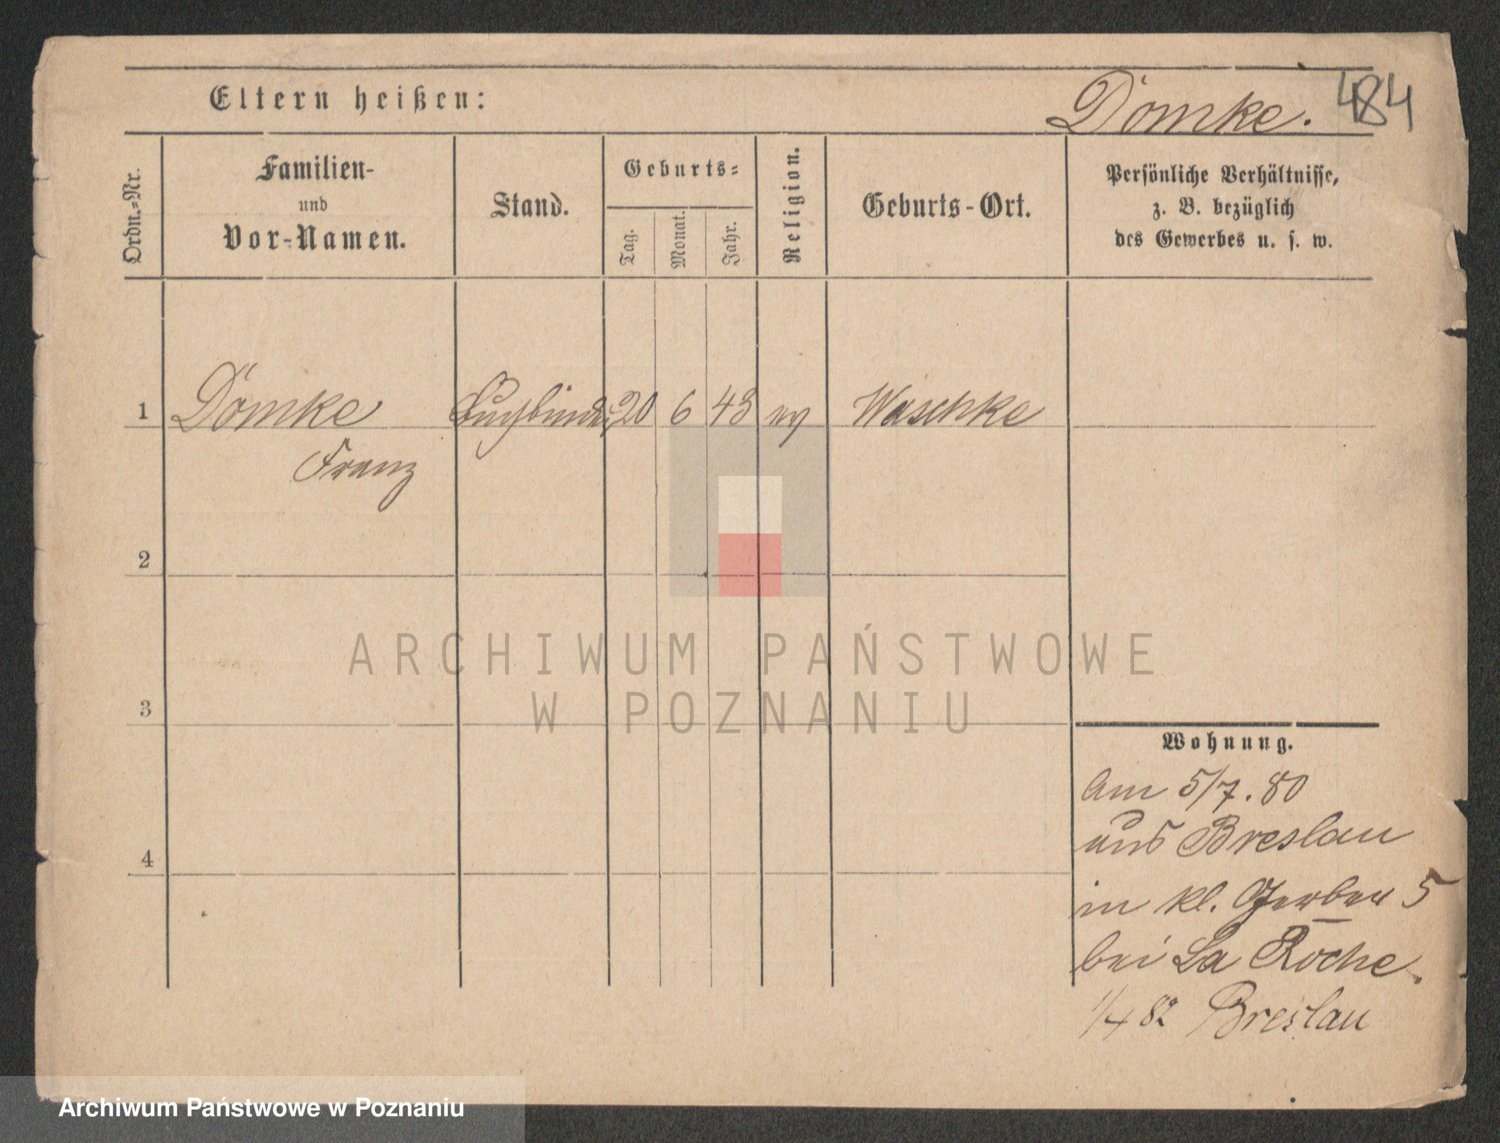 Eltern heißen:
Dömke.
484
Ordn.=Nr.
Familien-
und
Vor-Namen.
Stand.
Geburts=
Tag.
Monat.
Jahr.
Religion.
Geburts-Ort.
Persönliche Verhältnisse,
z. B. bezüglich
des Gewerbes u. s. w.
1 Dömke Buchbinder 20 6 43 ev Waschke
Franz
2
3
4
Wohnung.
Am 5/7. 80
aus Breslau
in kl. Gerber 5
bei La Roche.
1/4 82 Breslau
ARCHIWUM PAŃSTWOWE
W POZNANIU
Archiwum Państwowe w Poznaniu